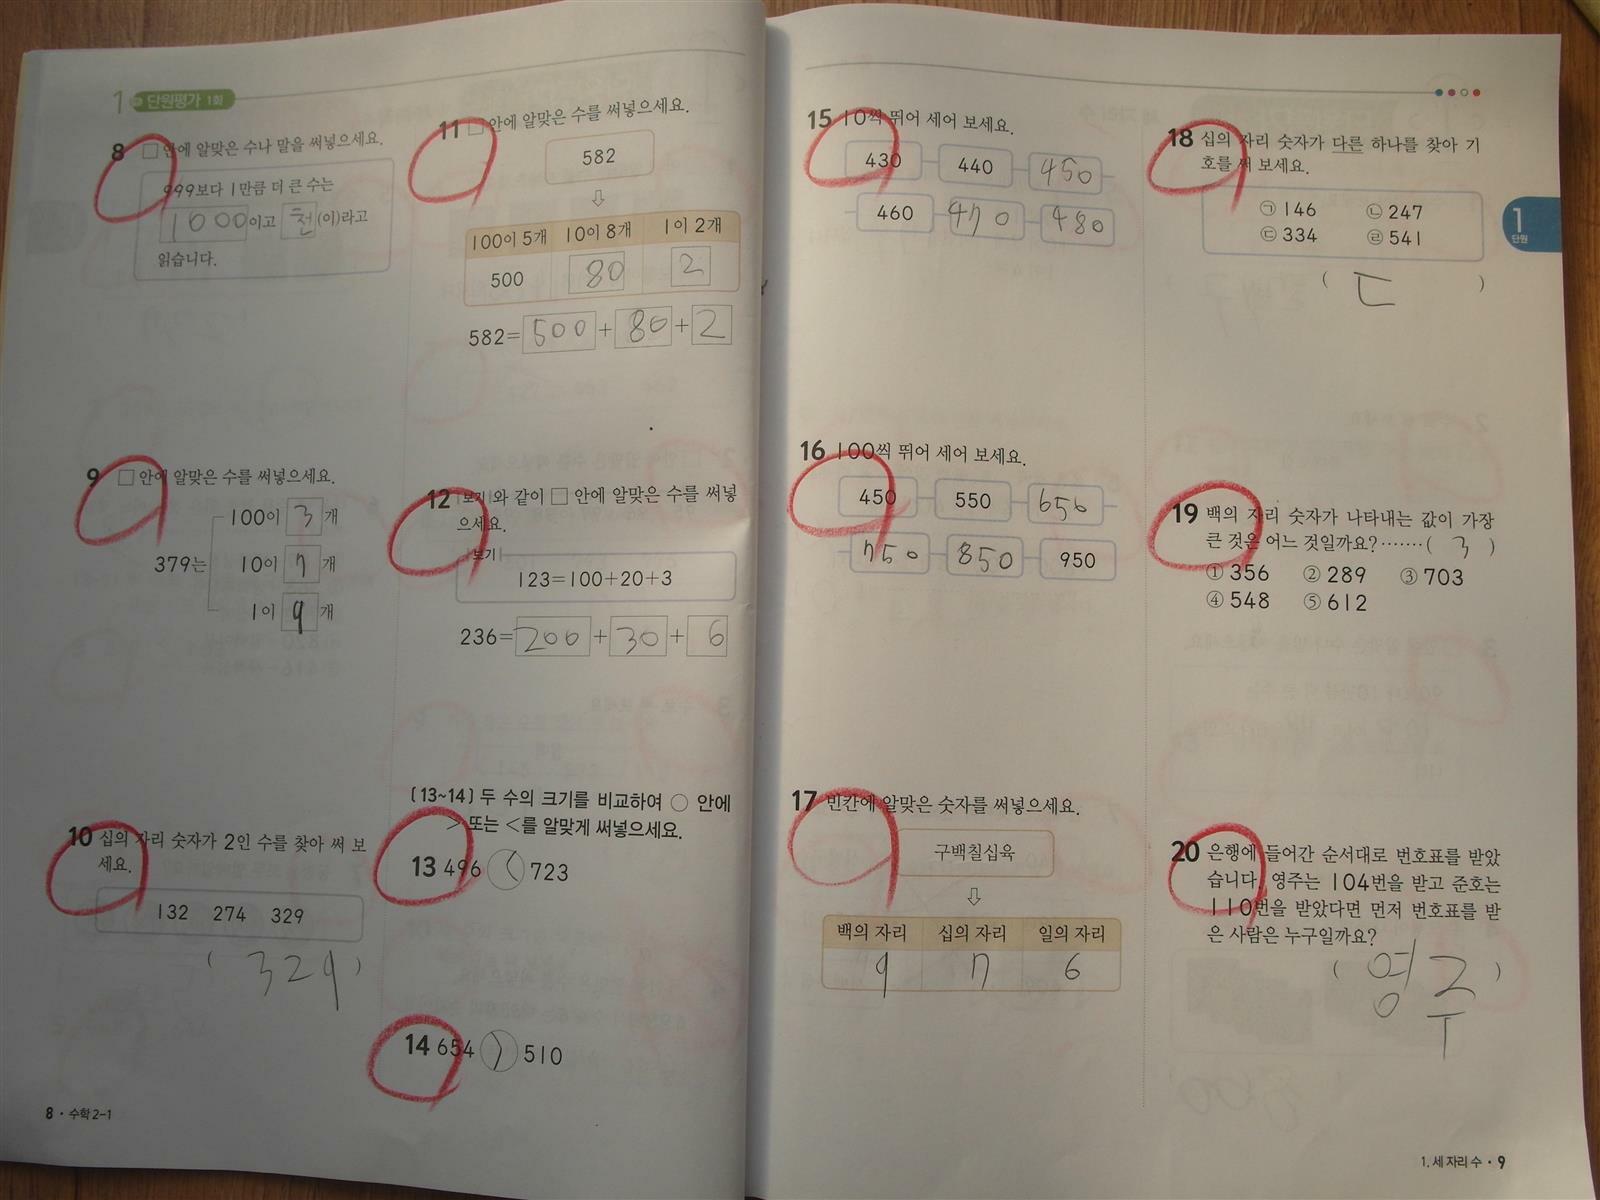 1 단원평가 1회
8 □안에 알맞은 수나 말을 써넣으세요.
999보다 1만큼 더 큰 수는
1000이고 천(이)라고
읽습니다.
9 □안에 알맞은 수를 써넣으세요.
379는
100이 3개
10이 7개
1이 9개
10 십의 자리 숫자가 2인 수를 찾아 써 보
세요.
132 274 329
( 329 )
11 □안에 알맞은 수를 써넣으세요.
582
⇩
100이 5개 10이 8개 1이 2개
500 80 2
582=500+80+2
12 보기와 같이 □ 안에 알맞은 수를 써넣
으세요.
보기
123=100+20+3
236=200+30+6
[13~14] 두 수의 크기를 비교하여 ○ 안에
> 또는 <를 알맞게 써넣으세요.
13 496 < 723
14 654 > 510
8 · 수학 2-1
15 10씩 뛰어 세어 보세요.
430 440 450
460 470 480
16 100씩 뛰어 세어 보세요.
450 550 650
750 850 950
17 빈칸에 알맞은 숫자를 써넣으세요.
구백칠십육
⇩
백의 자리 십의 자리 일의 자리
9 7 6
18 십의 자리 숫자가 다른 하나를 찾아 기
호를 써 보세요.
㉠ 146 ㉡ 247
㉢ 334 ㉣ 541
( ㄷ )
1
단원
19 백의 자리 숫자가 나타내는 값이 가장
큰 것은 어느 것일까요?·······( 3 )
① 356 ② 289 ③ 703
④ 548 ⑤ 612
20 은행에 들어간 순서대로 번호표를 받았
습니다. 영주는 104번을 받고 준호는
110번을 받았다면 먼저 번호표를 받
은 사람은 누구일까요?
( 영주 )
1. 세 자리 수 · 9